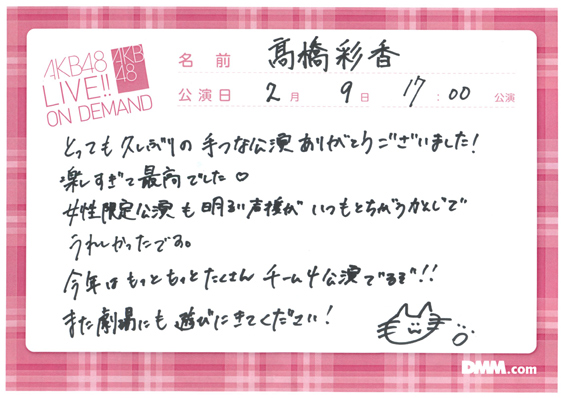 AKB48
LIVE!!
ON DEMAND
AKB
48
名前 髙橋彩香
公演日 2月 9日 17:00 公演
とっても久しぶりの 手つな公演 ありがとうございました!
楽しすぎて最高でした♡
女性限定公演も明るい声援が いつもとちがうかんじで
うれしかったです。
今年は もっともっとたくさん チーム4公演でるぞ!!
また劇場にも 遊びにきてください!
DMM.com